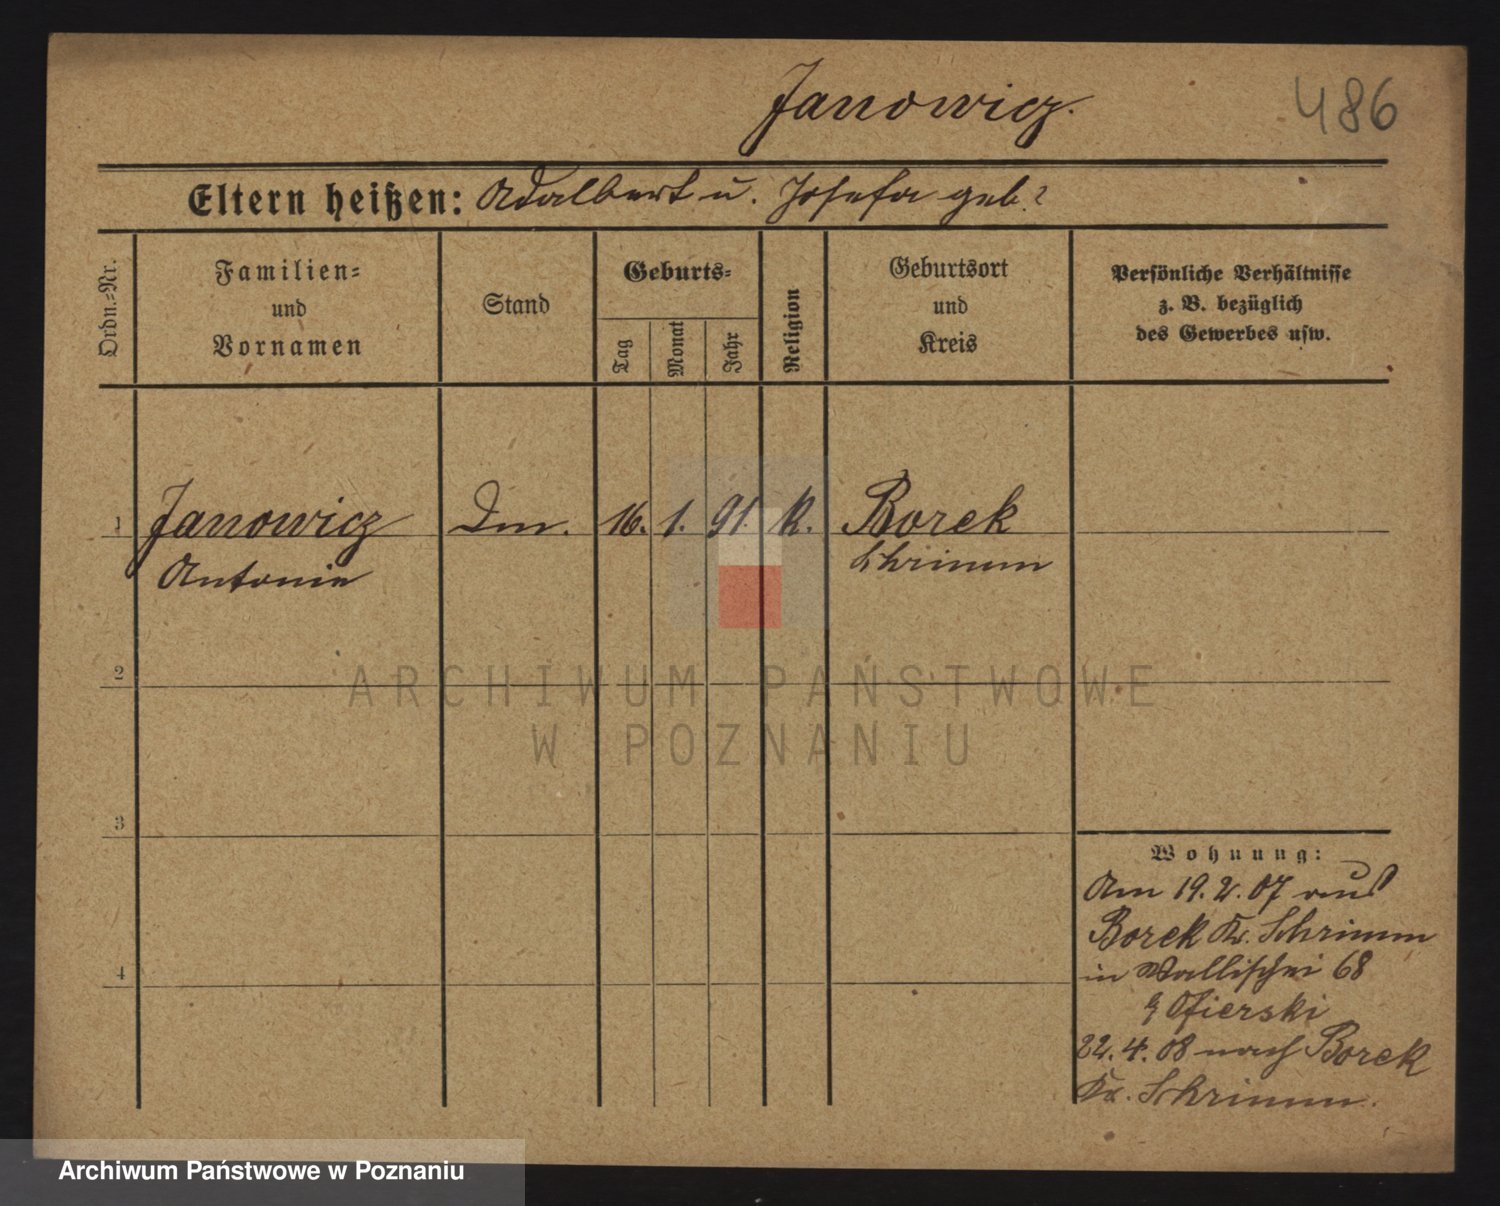 Janowicz.
486
Eltern heißen: Adalbert u. Josefa geb?
Ordn.-Nr.
Familien-
und
Vornamen
Stand
Geburts-
Tag
Monat
Jahr
Religion
Geburtsort
und
Kreis
Persönliche Verhältnisse
z. B. bezüglich
des Gewerbes usw.
1 Janowicz Dm. 16. 1. 91. k. Borek
Antonie Schrimm
2
ARCHIWUM PAŃSTWOWE
W POZNANIU
3
Wohnung:
Am 19.2.07 aus
Borek Kr. Schrimm
4
in Wallischei 68
Ofierski
22.4.08 nach Borek
Kr. Schrimm.
Archiwum Państwowe w Poznaniu